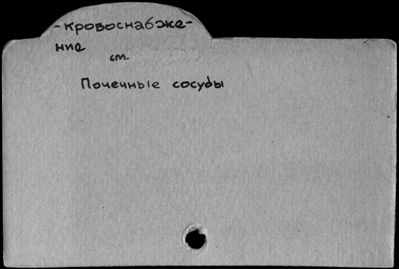 -кровоснабже-
ние
см.
Почечные сосуды